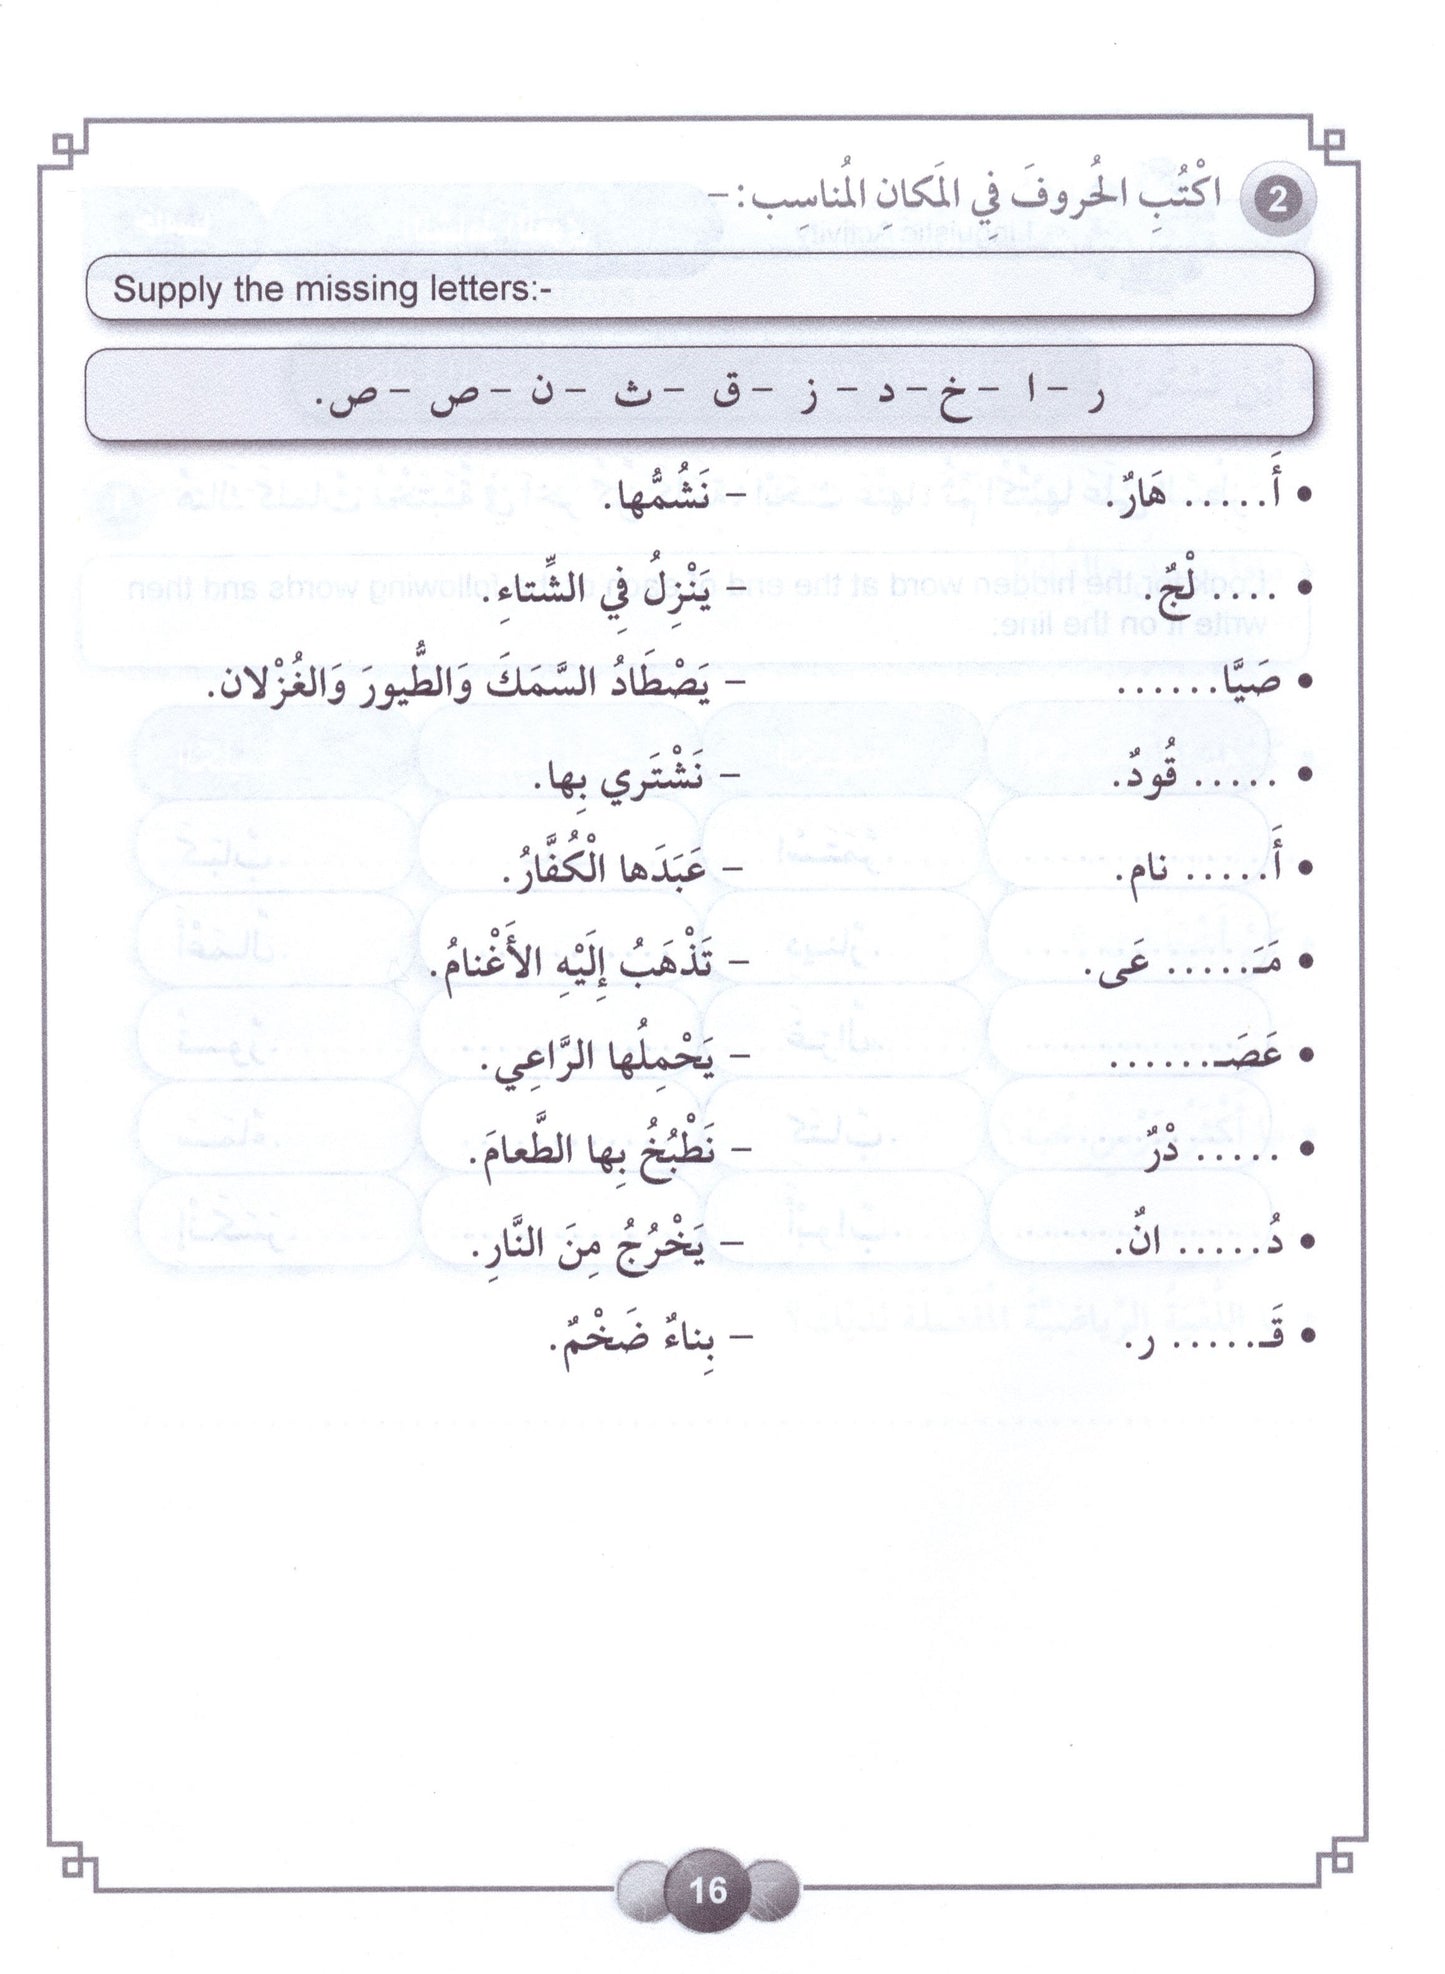 2 اكْتُبِ الحُروفَ فِي المَكان المُناسب:-
Supply the missing letters:-
ر - ا - خ - د - ز - ق - ث - ن - ص - ص.
• أَ..... هَارٌ. - نَشُمُّها.
• .... لْجٌ. - يَنْزِلُ فِي الشِّتاءِ.
• صَيَّا...... - يَصْطَادُ السَّمَكَ وَالطُّيورَ وَالغُزْلان.
• ..... قُودٌ. - نَشْتَري بِها.
• أَ..... نام. - عَبَدَها الْكُفَّارُ.
• مَـ..... عَى. - تَذْهَبُ إِلَيْهِ الأَغْنامُ.
• عَصَـ...... - يَحْمِلُها الرَّاعِي.
• ..... دْرٌ - نَطْبُخُ بِها الطَّعامَ.
• دُ..... انٌ. - يَخْرُجُ مِنَ النَّارِ.
• قَـ..... ر. - بِناءٌ ضَخْمٌ.
16